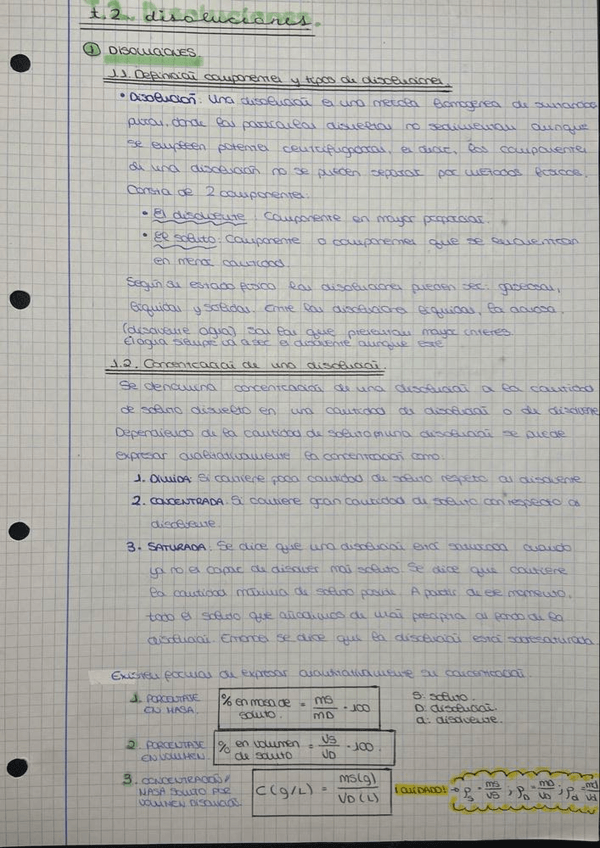 t.2. disoluciones.
① DISOLUCIONES.
1.1. Definición componentes y tipos de disoluciones.
• Disolución: Una disolución es una mezcla homogénea de sustancias
puras, donde las partículas disueltas no sedimentan aunque
se empleen potentes centrifugadoras, es decir, los componentes
de una disolución no se pueden separar por métodos físicos.
Consta de 2 componentes.
• El disolvente: Componente en mayor proporción.
• El soluto: Componente o componentes que se encuentran
en menor cantidad.
Según su estado físico las disoluciones pueden ser: gaseosas,
líquidas y sólidas. Entre las disoluciones líquidas, la acuosa.
(disolvente agua) son las que presentan mayor interés.
El agua siempre va a ser el disolvente aunque esté
1.2. Concentración de una disolución.
Se denomina concentración de una disolución a la cantidad
de soluto disuelto en una cantidad de disolución o de disolvente
Dependiendo de la cantidad de soluto una disolución se puede
expresar cualitativamente la concentración como:
1. DILUIDA: Si contiene poca cantidad de soluto respecto al disolvente
2. CONCENTRADA: Si contiene gran cantidad de soluto con respecto al
disolvente
3. SATURADA: Se dice que una disolución está saturada cuando
ya no es capaz de disolver más soluto. Se dice que contiene
la cantidad máxima de soluto posible. A partir de ese momento,
todo el soluto que añadimos de más precipita al fondo de la
disolución. Entonces se dice que la disolución está sobresaturada
Existen formas de expresar cuantitativamente su concentración
1. PORCENTAJE EN MASA. % en masa de soluto. = ms / mD · 100
S: soluto.
D: disolución.
d: disolvente.
2. PORCENTAJE EN VOLUMEN. % en volumen de soluto = Vs / VD · 100.
3. CONCENTRACIÓN MASA SOLUTO POR VOLUMEN DISOLUCIÓN C(g/L) = ms(g) / VD(L)
¡CUIDADO! → ρs = ms/Vs ; ρD = mD/VD ; ρd = md/Vd